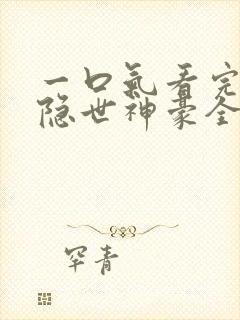 一口氣看完
隐世神豪全
罕青